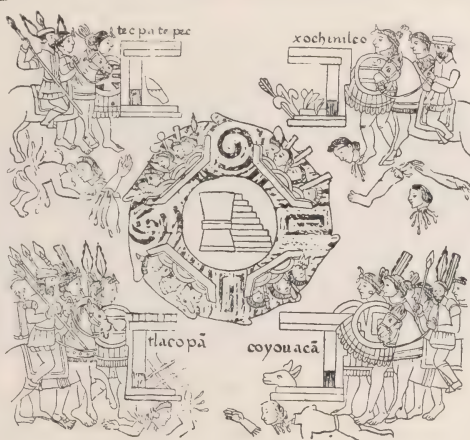 tecpatepec
xochimilco
tlacopā
coyouacā